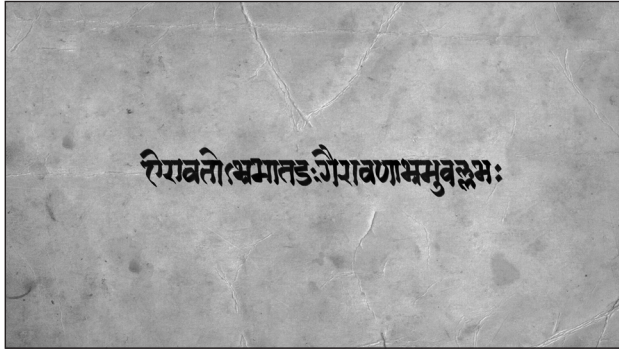 ऐरावतोऽभ्रमातडःगैरावणाभ्रमुवल्लभः